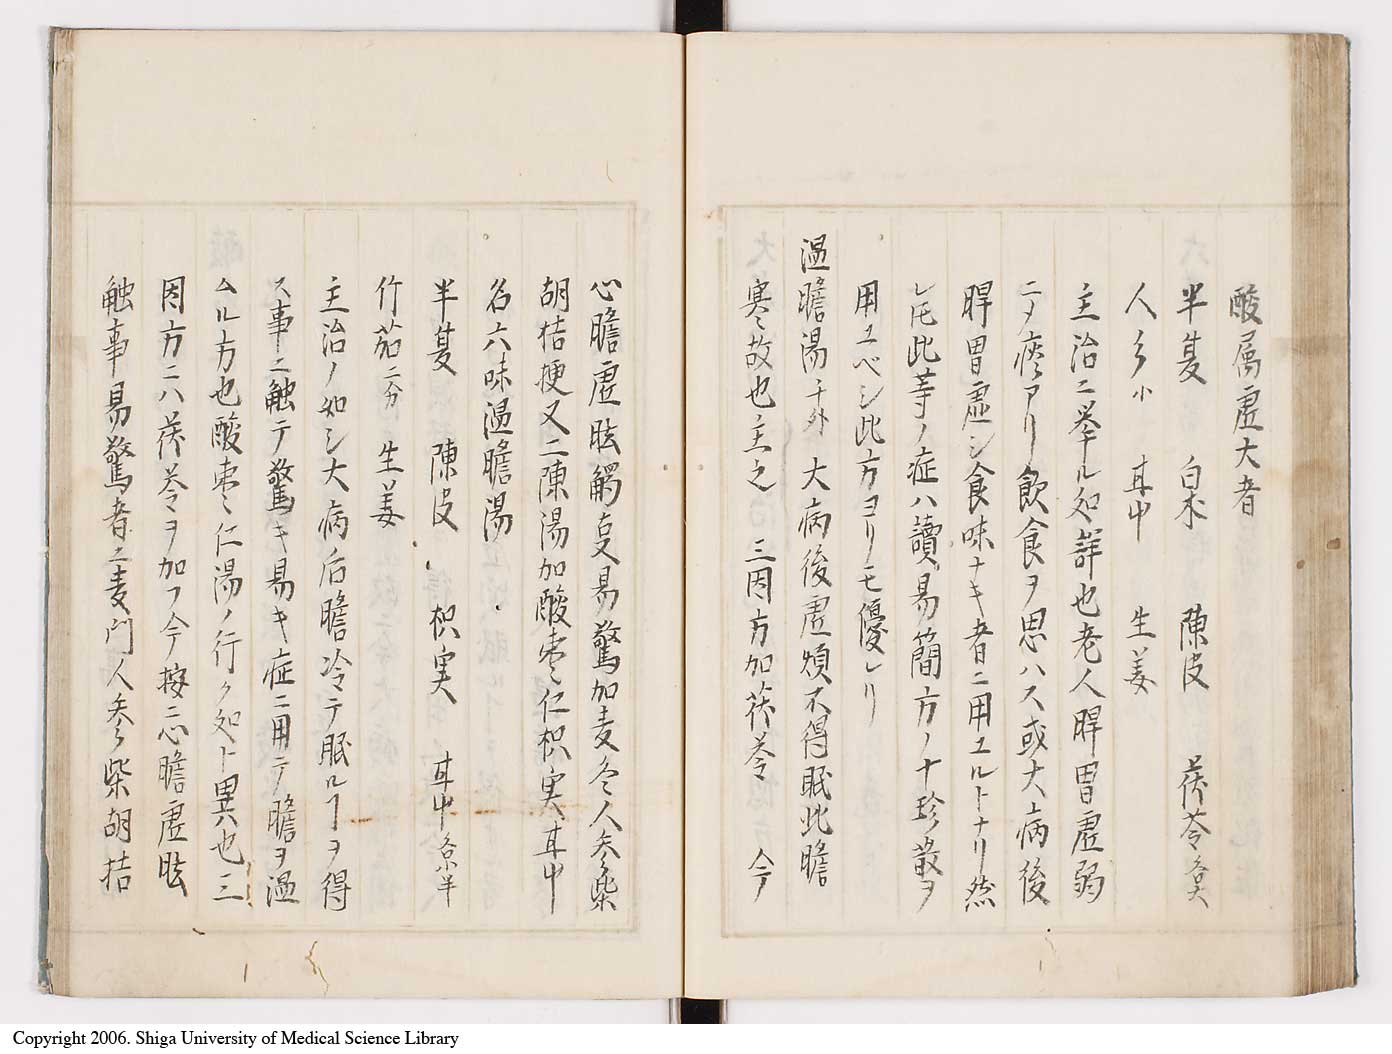 酸属虚大者
半夏 白朮 陳皮 茯苓各大
人参小 甘中 生姜
主治ニ挙ル処詳也老人脾胃虚弱
ニメ痰アリ飲食ヲ思ハス或大病後
脾胃虚シ食味ナキ者ニ用ユルトナリ然
レ𪜈此等ノ症ハ讀易簡方ノ十珍散ヲ
用ユベシ此方ヨリモ優レリ
温膽湯千外 大病後虚煩不得眠此膽
寒故也主之 三因方加茯苓 今
心膽虚眩觸夏易驚加麦冬人参柴
胡桔梗又二陳湯加酸棗仁枳実甘中
名六味温膽湯
半夏 陳皮 枳実 甘中各小半
竹茹二分 生姜
主治ノ如シ大病后膽冷テ眠ルヿヲ得
ス事ニ触テ驚キ易キ症ニ用テ膽ヲ温
ムル方也酸棗仁湯ノ行ク処ト異也三
因方ニハ茯苓ヲ加フ今按ニ心膽虚眩
触事易驚者ニ麦門人参柴胡桔
Copyright 2006. Shiga University of Medical Science Library